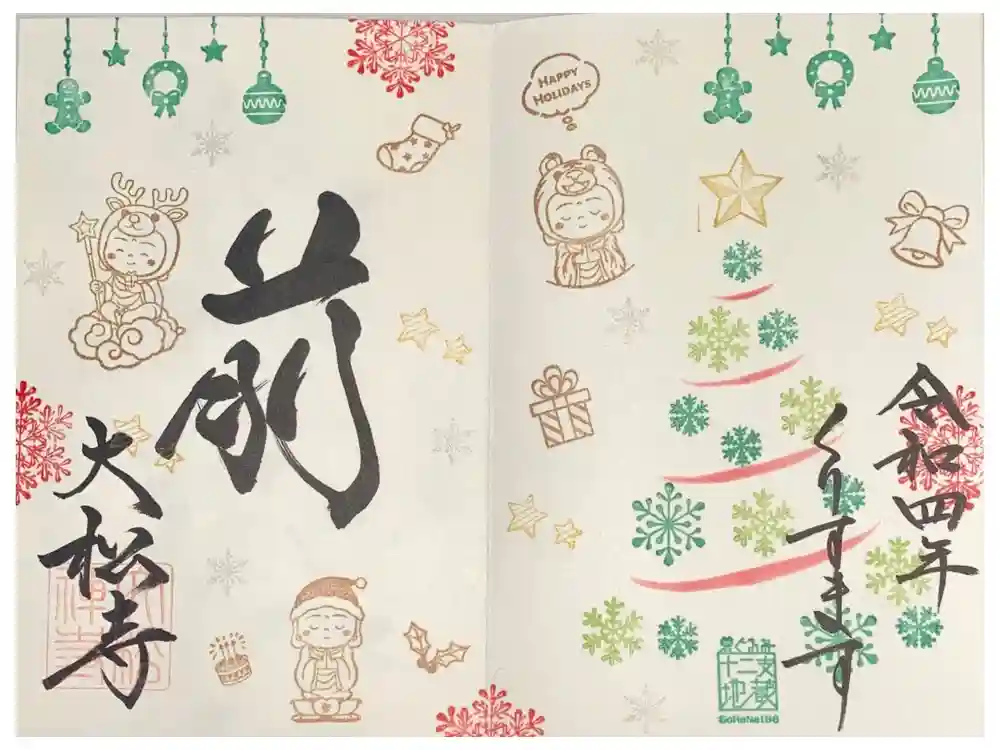 HAPPY
HOLIDAYS
令和四年
くりすます
十二支
地蔵
大松寺